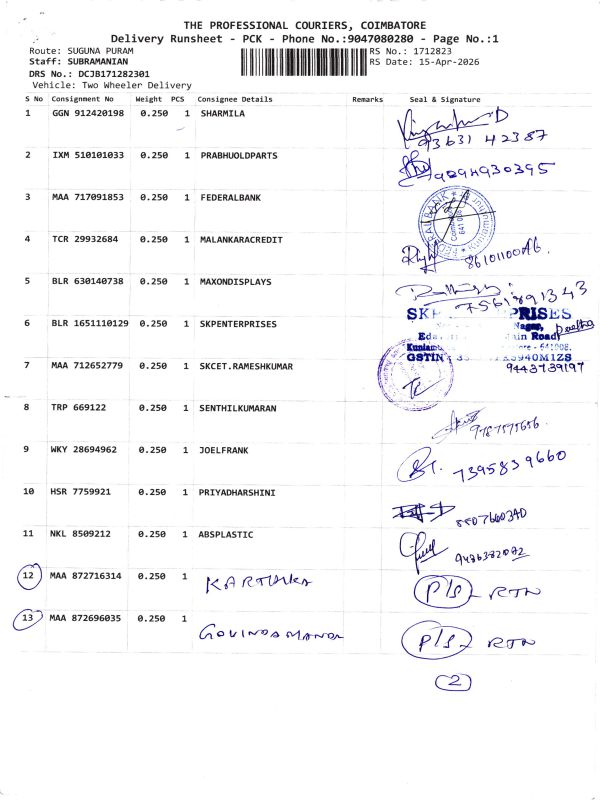 THE PROFESSIONAL COURIERS, COIMBATORE
Delivery Runsheet - PCK - Phone No.:9047080280 - Page No.:1
Route: SUGUNA PURAM
RS No.: 1712823
Staff: SUBRAMANIAN
RS Date: 15-Apr-2026
DRS No.: DCJB171282301
Vehicle: Two Wheeler Delivery
S No Consignment No Weight PCS Consignee Details Remarks Seal & Signature
1 GGN 912420198 0.250 1 SHARMILA
93631 42387
2 IXM 510101033 0.250 1 PRABHUOLDPARTS
9294930395
3 MAA 717091853 0.250 1 FEDERALBANK
4 TCR 29932684 0.250 1 MALANKARACREDIT
5 BLR 630140738 0.250 1 MAXONDISPLAYS
7561891343
6 BLR 1651110129 0.250 1 SKPENTERPRISES
SKP PRISES
Nagar,
Main Road
641008.
GSTIN
9443739197
7 MAA 712652779 0.250 1 SKCET.RAMESHKUMAR
8 TRP 669122 0.250 1 SENTHILKUMARAN
9 WKY 28694962 0.250 1 JOELFRANK
7395839660
10 HSR 7759921 0.250 1 PRIYADHARSHINI
8807660340
11 NKL 8509212 0.250 1 ABSPLASTIC
12 MAA 872716314 0.250 1 KARTHIKA P/S RTN
13 MAA 872696035 0.250 1 GOVINDAMANDA P/S RTN
2